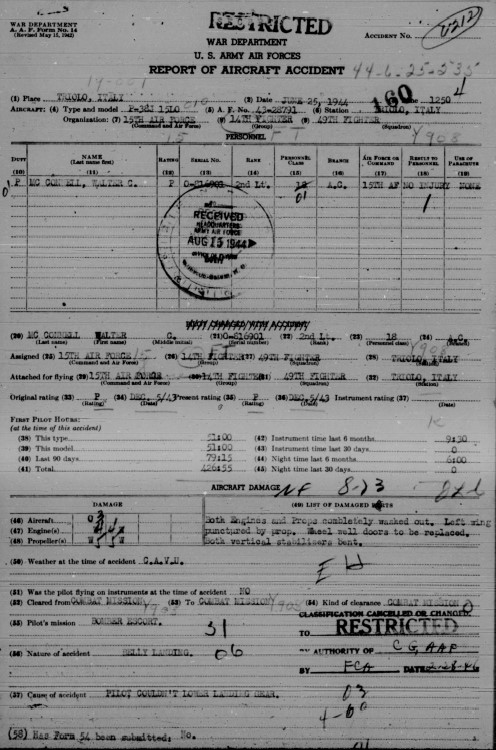 WAR DEPARTMENT
A. A. F. Form No. 14
(Revised May 15, 1942)
RESTRICTED
ACCIDENT No.
WAR DEPARTMENT
U. S. ARMY AIR FORCES
REPORT OF AIRCRAFT ACCIDENT 44-6-25-535
(1) Place TRIOLO, ITALY (2) Date JUNE 25, 1944 160 1250
AIRCRAFT: (4) Type and model P-38J 15LO (5) A. F. No. 43-28791 (6) Station TRIOLO, ITALY
Organization: (7) 15TH AIR FORCE (8) 14TH FIGHTER (9) 49TH FIGHTER
(Command and Air Force) (Group) (Squadron)
PERSONNEL
DUTY NAME (Last name first) RATING SERIAL NO. RANK PERSONNEL CLASS BRANCH AIR FORCE OR COMMAND RESULT TO PERSONNEL USE OF PARACHUTE
(10) (11) (12) (13) (14) (15) (16) (17) (18) (19)
P MC CONNELL, WALTER C. P O-816901 2nd Lt. 18 A.C. 15TH AF NO INJURY NONE
01 1
RECEIVED
HEADQUARTERS
ARMY AIR FORCE
AUG 15 1944
(20) MC CONNELL WALTER C. (21) O-816901 (22) 2nd Lt. (23) 18 (24) A.C.
(Last name) (First name) (Middle initial) (Serial number) (Rank) (Personnel class) (Branch)
Assigned (25) 15TH AIR FORCE (26) 14TH FIGHTER (27) 49TH FIGHTER (28) TRIOLO, ITALY
(Command and Air Force) (Group) (Squadron) (Station)
Attached for flying (29) 15TH AIR FORCE (30) 14TH FIGHTER (31) 49TH FIGHTER (32) TRIOLO, ITALY
(Command and Air Force) (Group) (Squadron) (Station)
Original rating (33) P (34) DEC. 5/43 Present rating (35) P (36) DEC. 5/43 Instrument rating (37)
(Rating) (Date) (Rating) (Date) (Date)
FIRST PILOT HOURS:
(at the time of this accident)
(38) This type 51:00 (42) Instrument time last 6 months 9:30
(39) This model 51:00 (43) Instrument time last 30 days 0
(40) Last 90 days 79:15 (44) Night time last 6 months 6:00
(41) Total 426:55 (45) Night time last 30 days 0
AIRCRAFT DAMAGE
DAMAGE (49) LIST OF DAMAGED PARTS
(46) Aircraft Both Engines and Props completely washed out. Left wing
(47) Engine(s) punctured by prop. Wheel well doors to be replaced.
(48) Propeller(s) Both vertical stabilizers bent.
(50) Weather at the time of accident C.A.V.U.
(51) Was the pilot flying on instruments at the time of accident NO
(52) Cleared from COMBAT MISSION (53) To COMBAT MISSION (54) Kind of clearance COMBAT MISSION
CLASSIFICATION CANCELLED OR CHANGED
(55) Pilot's mission BOMBER ESCORT. 51 TO RESTRICTED
BY AUTHORITY OF CG, AAF
(56) Nature of accident BELLY LANDING. 06
BY FCA DATE 2-28-46
(57) Cause of accident PILOT COULDN'T LOWER LANDING GEAR. 03
(58) Has Form 54 been submitted: No.